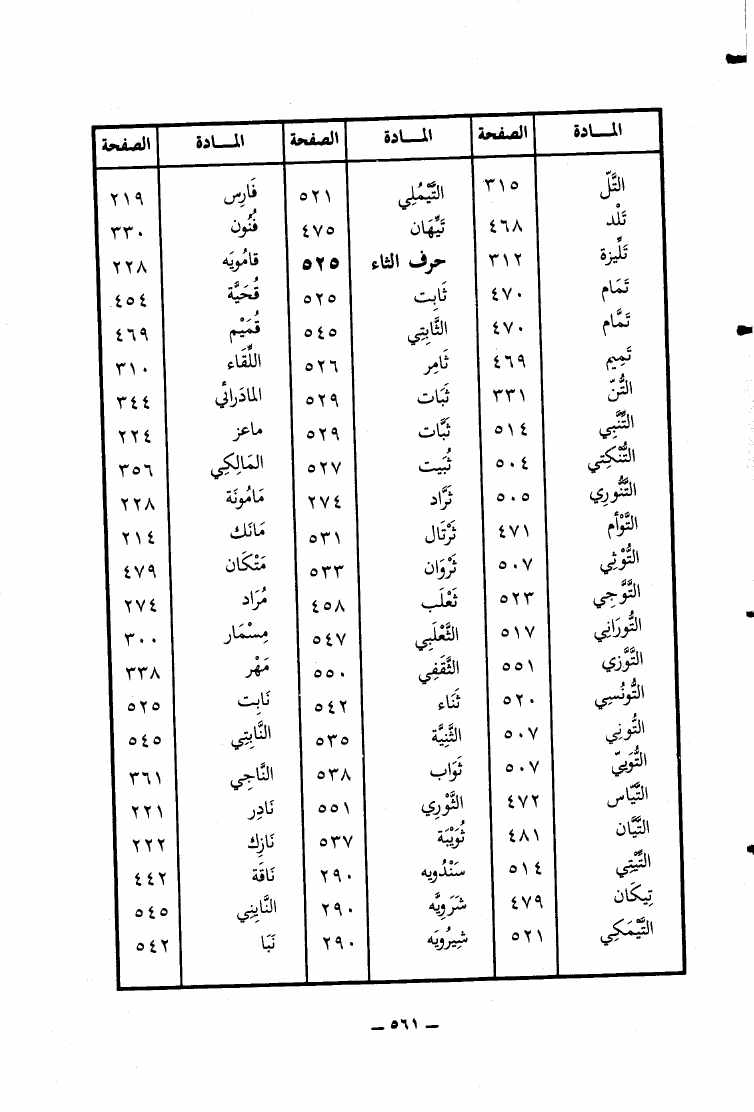 المـــادة الصفحة المـــادة الصفحة المـــادة الصفحة
التَّلّ ٣١٥ التَّيْمُلِي ٥٢١ فَارِس ٢١٩
تَلْد ٤٦٨ تَيَّهَان ٤٧٥ فَنُّون ٣٣٠
تَلِّيزة ٣١٢ حرف الثاء ٥٢٥ قامُويَه ٢٢٨
تَمَام ٤٧٠ ثَابِت ٥٢٥ قُحَيَّة ٤٥٤
تَمَّام ٤٧٠ الثَّابِتِي ٥٤٥ قُمَيْم ٤٦٩
تَمِيم ٤٦٩ ثَامِر ٥٢٦ اللِّقَاء ٣١٠
التُّنّ ٣٣١ ثَبَات ٥٢٩ المادَرائي ٣٤٤
التِّنَّبِي ٥١٤ ثَبَّات ٥٢٩ ماعز ٢٢٤
التُّنْكَتِي ٥٠٤ ثُبَيت ٥٢٧ المَالِكِي ٣٥٦
التَّنُّورِي ٥٠٥ ثَرَّاد ٢٧٤ مَامُونَة ٢٢٨
التَّوْأم ٤٧١ ثَرْثَال ٥٣١ مَانَك ٢١٤
التُّوْثِي ٥٠٧ ثَرْوَان ٥٣٣ مَتْكَان ٤٧٩
التَّوَّجِي ٥٢٣ ثَعْلَب ٤٥٨ مُرَاد ٢٧٤
التُّورَانِي ٥١٧ الثَّعْلَبِي ٥٤٧ مِسْمَار ٣٠٠
التَّوَّزِي ٥٥١ الثَّقَفِي ٥٥٠ مَهْر ٣٣٨
التُّونُسِي ٥٢٠ ثَنَاء ٥٤٢ نَابِت ٥٢٥
التُّونِي ٥٠٧ الثَّنِيَّة ٥٣٥ النَّابِتِي ٥٤٥
التُّوَيِّي ٥٠٧ ثَوَاب ٥٣٨ النَّاجِي ٣٦١
التَّيَّاس ٤٧٢ الثَّوْرِي ٥٥١ نَادِر ٢٢١
التَّيَّان ٤٨١ ثُوَيْبَة ٥٣٧ نَازِك ٢٢٢
التِّيْتِي ٥١٤ سَنْدُويه ٢٩٠ نَاقَة ٤٤٢
تِيكَان ٤٧٩ شَرَويَّه ٢٩٠ النَّايِني ٥٤٥
التَّيْمَكِي ٥٢١ شِيرُويَه ٢٩٠ نَبَا ٥٤٢
— ٥٦١ —